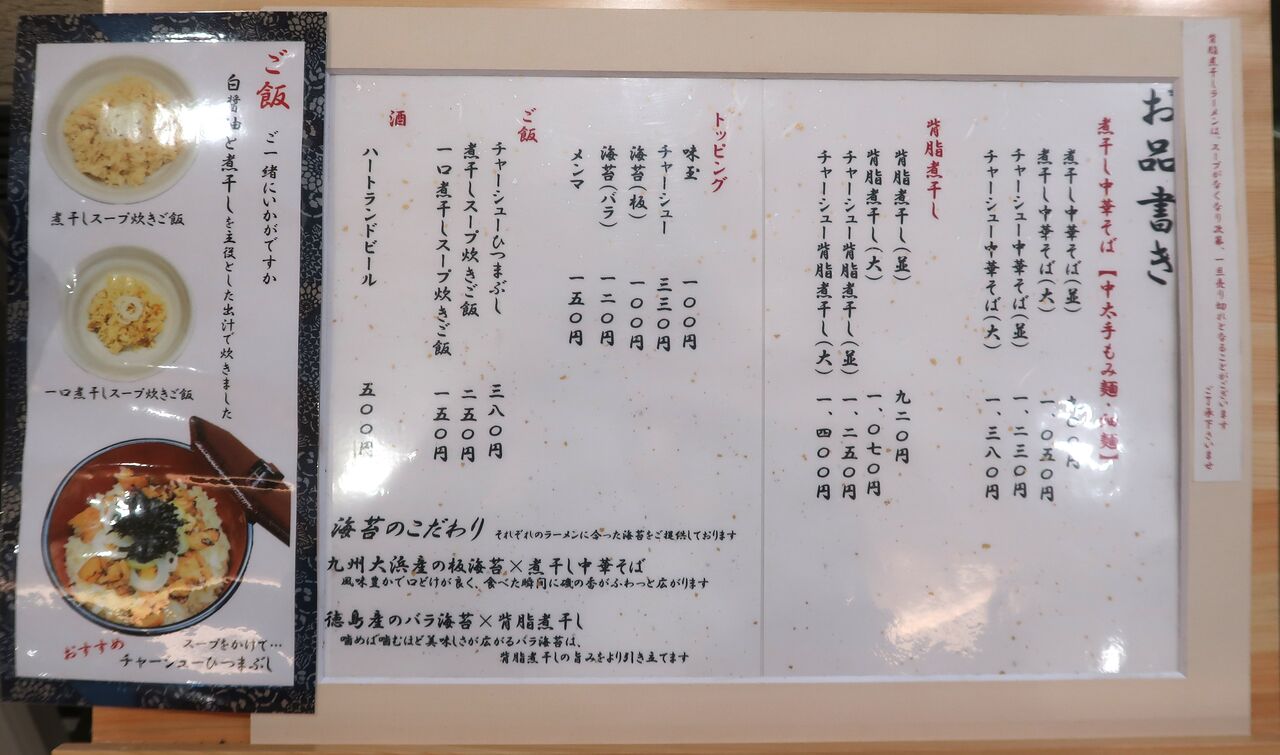 背脂煮干しラーメンは、スープがなくなり次第、一旦売り切れとなることがございます
ご了承下さいませ
お品書き
煮干し中華そば【中太手もみ麺・細麺】
煮干し中華そば(並)
煮干し中華そば(大) 一、〇五〇円
チャーシュー中華そば(並) 一、二三〇円
チャーシュー中華そば(大) 一、三八〇円
背脂煮干し
背脂煮干し(並) 九二〇円
背脂煮干し(大) 一、〇七〇円
チャーシュー背脂煮干し(並) 一、二五〇円
チャーシュー背脂煮干し(大) 一、四〇〇円
トッピング
味玉 一〇〇円
チャーシュー 三三〇円
海苔(板) 一〇〇円
海苔(バラ) 一二〇円
メンマ 一五〇円
ご飯
チャーシューひつまぶし 三八〇円
煮干しスープ炊きご飯 二五〇円
一口煮干しスープ炊きご飯 一五〇円
酒
ハートランドビール 五〇〇円
海苔のこだわり それぞれのラーメンに合った海苔をご提供しております
九州大浜産の板海苔×煮干し中華そば
風味豊かで口どけが良く、食べた瞬間に磯の香がふわっと広がります
徳島産のバラ海苔×背脂煮干し
噛めば噛むほど美味しさが広がるバラ海苔は、
背脂煮干しの旨みをより引き立てます
ご飯 ご一緒にいかがですか
白醤油と煮干しを主役とした出汁で炊きました
煮干しスープ炊きご飯
一口煮干しスープ炊きご飯
おすすめ
スープをかけて…
チャーシューひつまぶし